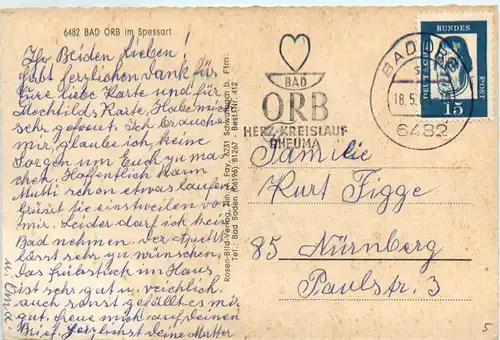 6482 BAD ORB im Spessart
Ihr Beiden Lieben!
habt herzlichen Dank für
Eure liebe Karte und für
Mechtilds Karte, Habe mich
sehr gefreut. Ich brauche
mir, glaube ich, keine
Sorgen um Euch zu ma-
chen. Hoffentlich kann
Mutti schon etwas laufen
Grüsst sie einstweilen von
mir. Leider darf ich kein
Bad nehmen. der Appetit
lässt sehr zu wünschen.
Das Frühstück im Haus
ist sehr gut u. reichlich.
auch sonst gefällt es mir
gut, freue mich auf deinen
Brief. Herzlichst deine Mutter
u. Oma!
Rosen-Bild-Verlag, Fay, 6231 Schwalbach b. Ffm.
Tel.: Bad Soden (06196) 81267 - Best.-Nr. 412
BAD
ORB
HERZ-KREISLAUF
RHEUMA
BAD ORB
18.5.
6482
DEUTSCHE BUNDESPOST
15
Familie
Kurt Figge
85 Nürnberg
Paulstr. 3
5